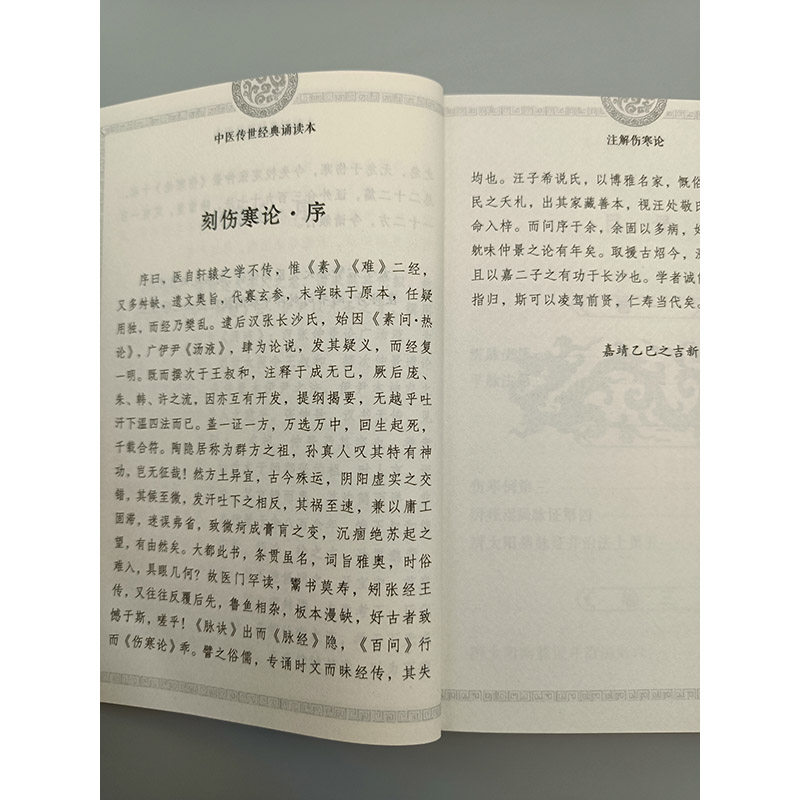 中医传世经典诵读本
刻伤寒论·序
序曰、医自轩辕之学不传，惟《素》《难》二经，
又多舛缺，遗文奥旨，代寡玄参，末学昧于原本，任疑
用独，而经乃樊乱。逮后汉张长沙氏，始因《素问·热
论》，广伊尹《汤液》，肆为论说，发其疑义，而经复
一明。既而撰次于王叔和，注释于成无已，厥后庞、
朱、韩、许之流，因亦互有开发，提纲揭要，无越乎吐
汗下温四法而已。盖一证一方，万选万中，回生起死，
千载合符。陶隐居称为群方之祖，孙真人叹其特有神
功，岂无征哉！然方土异宜，古今殊运，阴阳虚实之交
错，其候至微，发汗吐下之相反，其祸至速，兼以庸工
固滞，迷谬弗省，致微疴成膏肓之变，沉痼绝苏起之
望，有由然矣。大都此书，条贯虽名，词旨雅奥，时俗
难入，具眼几何？故医门罕读，鬻书莫寿，矧张经王
传，又往往反覆后先，鲁鱼相杂，板本漫缺，好古者致
憾于斯，嗟乎！《脉诀》出而《脉经》隐，《百问》行
而《伤寒论》乖。譬之俗儒，专诵时文而昧经传，其失
注解伤寒论
均也。汪子希说氏，以博雅名家，慨俗
民之夭札，出其家藏善本，视汪处敬氏
命入梓。而问序于余，余固以多病，好
躭味仲景之论有年矣。取援古炤今，
且以嘉二子之有功于长沙也。学者诚
指归，斯可以凌驾前贤，仁寿当代矣。
嘉靖乙巳之吉新